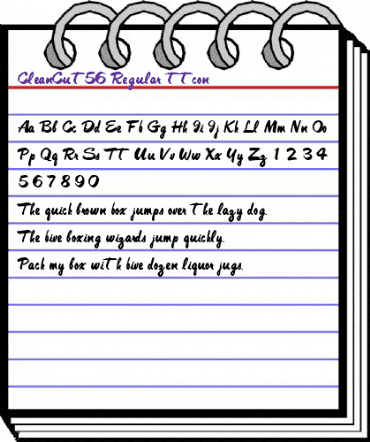 CleanCuT 56 Regular TT con
Aa Bb Cc Dd Ee Fb Gg Hh Ii Jj Kh Ll Mm Nn Oo
Pp Qq Rr Ss TT Uu Vv Ww Xx Yy Zz 1 2 3 4
5 6 7 8 9 0
The quick brown box jumps over The lazy dog.
The bive boxing wizards jump quickly.
Pack my box wiTh bive dozen liquor jugs.